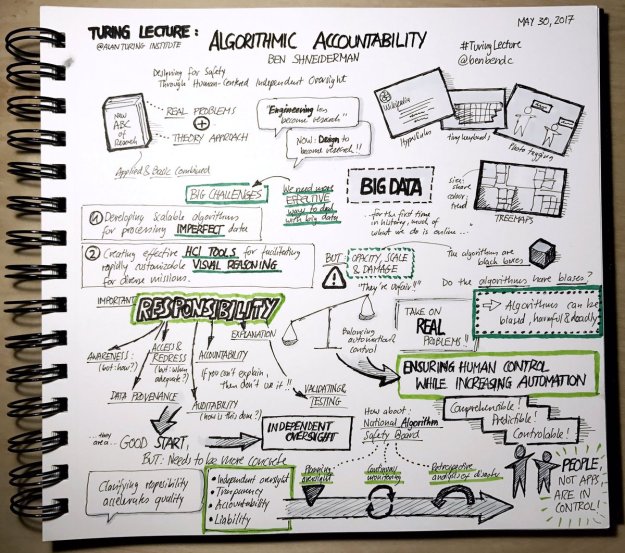 TURING LECTURE:
@ALAN TURING INSTITUTE
ALGORITHMIC ACCOUNTABILITY
BEN SHNEIDERMAN
MAY 30, 2017
#TuringLecture
@benbendc
Designing for Safety
Through Human-Centred Independent Oversight
New
ABC
of
Research
REAL PROBLEMS
THEORY APPROACH
Applied & Basic Combined
"Engineering has
become research"
NOW: Design to
become research!!
Wikipedia
Hyperlinks
tiny keyboards
Photo tagging
BIG CHALLENGES
We need more
EFFECTIVE
ways to deal
with big data
BIG DATA
...for the first time
in history, much of
what we do is online...
size:
share
colour:
trend
TREEMAPS
1 Developing scalable algorithms
for processing IMPERFECT data
2 Creating effective HCI TOOLS for facilitating
rapidly customizable VISUAL REASONING
for diverse missions.
BUT: OPACITY, SCALE
& DAMAGE
"They're unfair!!"
The algorithms are
black boxes
Do the algorithms have biases?
Algorithms can be
biased, harmful & deadly
IMPORTANT
RESPONSIBILITY
AWARENESS:
(but: how?)
ACCESS &
REDRESS
(but: why
adequate?)
DATA PROVENANCE
ACCOUNTABILITY
If you can't explain,
then don't use it!!
AUDITABILITY
(how is this done?)
EXPLANATION
VALIDATING &
TESTING
Balancing
automation &
control
TAKE ON
REAL
PROBLEMS!!
ENSURING HUMAN CONTROL
WHILE INCREASING AUTOMATION
Comprehensible!
Predictible!
Controlable!
...they are
a... GOOD START,
BUT: Needs to be more concrete
INDEPENDENT
OVERSIGHT
How about:
National Algorithm
Safety Board
Clarifying responsibility
accelerates quality
• Independent oversight
• Transparency
• Accountability
• Liability
Planning
oversight
Continuous
monitoring
Retrospective
analysis of disaster
PEOPLE,
NOT APPS
ARE IN
CONTROL!